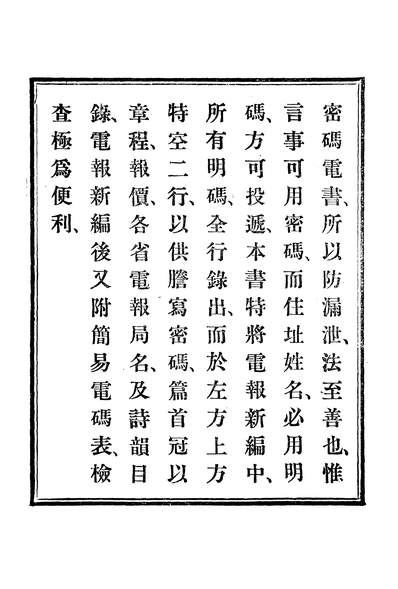 密碼電書、所以防漏泄、法至善也、惟
言事可用密碼、而住址姓名、必用明
碼、方可投遞、本書特將電報新編中、
所有明碼、全行錄出、而於左方上方
特空二行、以供謄寫密碼、篇首冠以
章程、報價、各省電報局名、及詩韻目
錄、電報新編後又附簡易電碼表、檢
查極爲便利、